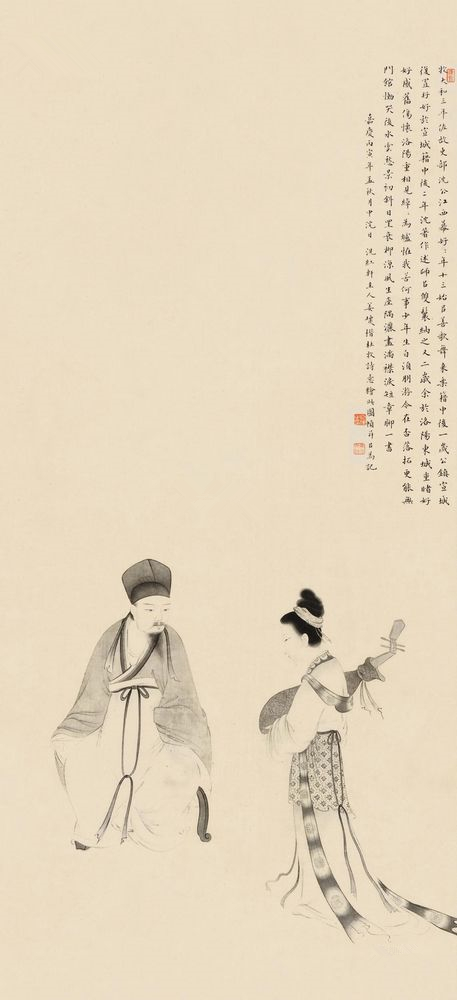 牧大和三年佐故吏部沈公江西幕好好年十三始以善歌舞來樂籍中後一歲公鎮宣城
復置好好於宣城籍中後二年沈著作述師以雙鬟納之又二歲余於洛陽東城重睹好
好感舊傷懷洛陽重相見綽綽為壚怪我苦何事少年生白須朋游今在否落拓更能無
門館慟哭後水雲愁景初斜日里衰柳涼風生座隅灑盡滿襟淚短章聊一書
嘉慶丙寅年孟秋月中浣日 洗紅軒主人姜壎楷杜牧詩意繪此圖幀并以為記